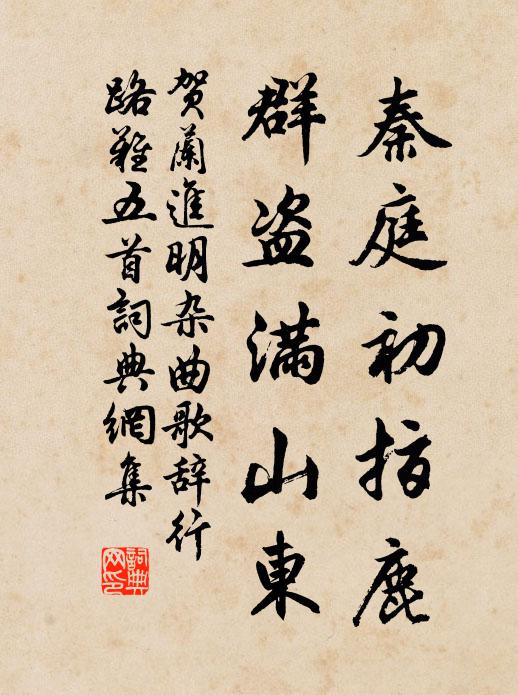 秦庭初指鹿
群盗满山東
贺蘭進明杂曲歌辞行
路難五首詞典網集
詞典
网印